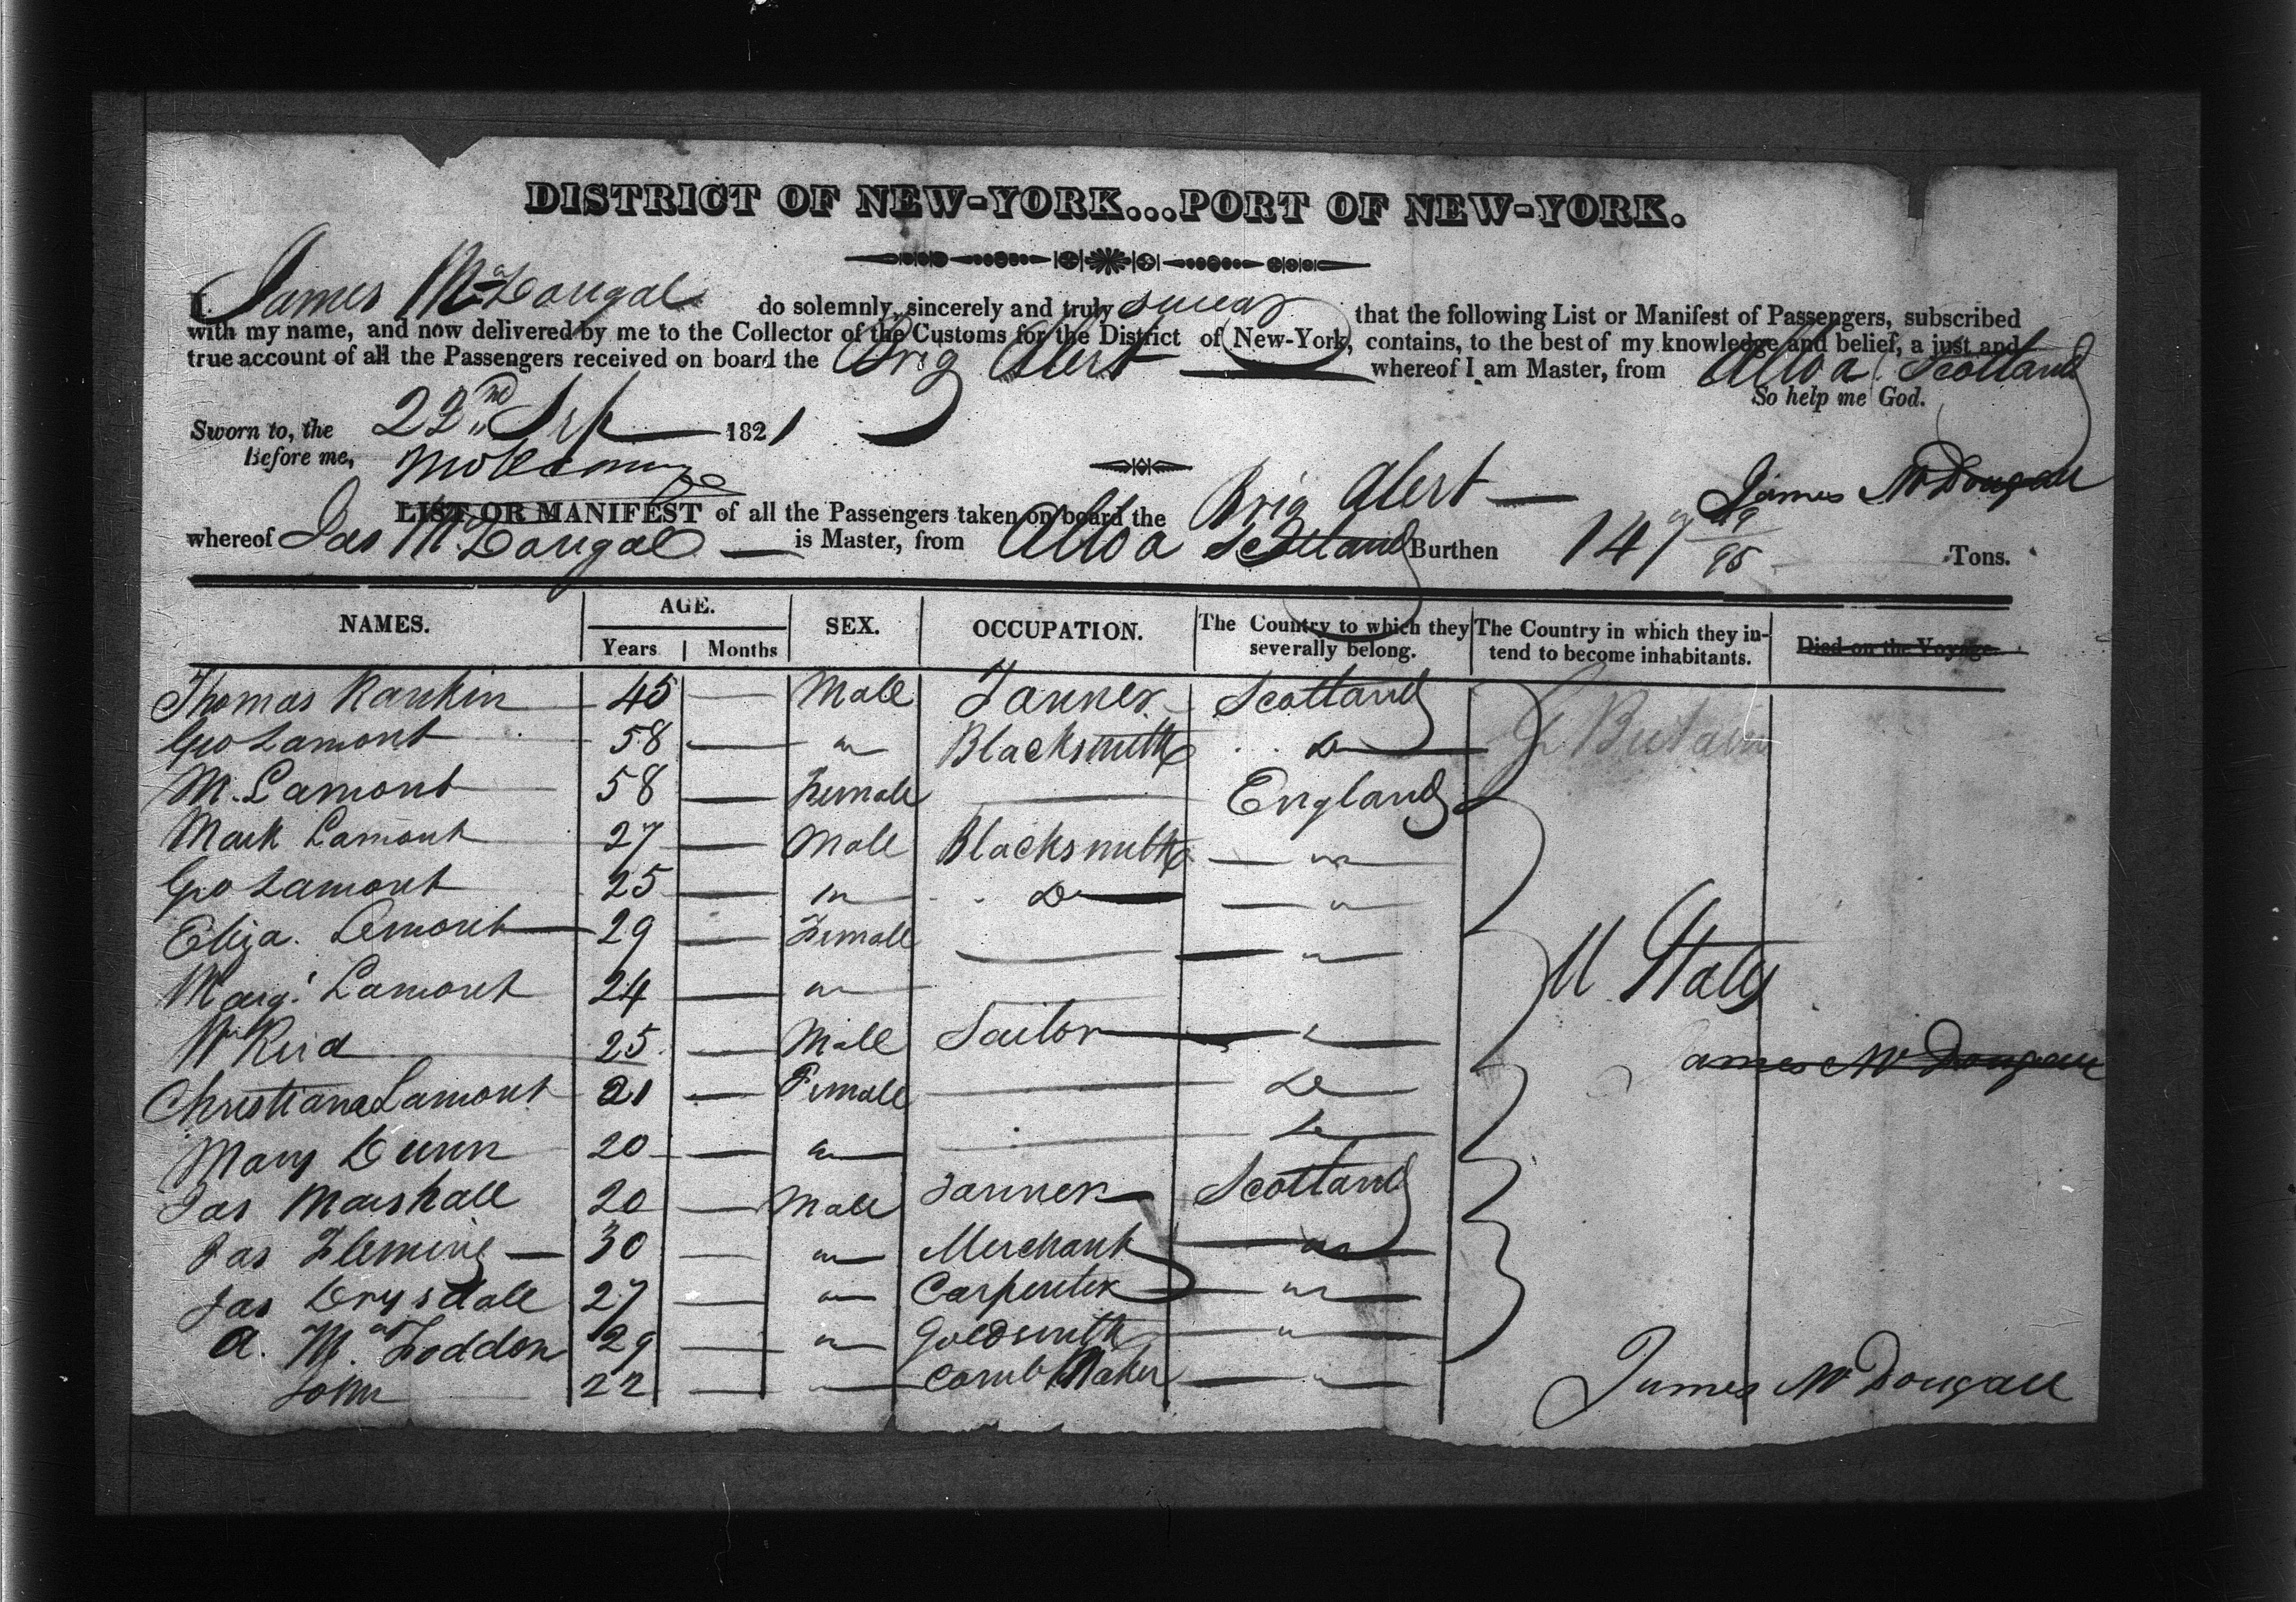 DISTRICT OF NEW-YORK...PORT OF NEW-YORK.
I, James McDougal do solemnly, sincerely and truly swear that the following List or Manifest of Passengers, subscribed
with my name, and now delivered by me to the Collector of the Customs for the District of New-York, contains, to the best of my knowledge and belief, a just and
true account of all the Passengers received on board the Brig Alert whereof I am Master, from Alloa Scotland
So help me God.
Sworn to, the 22nd Sep 1821
Before me,
James McDougall
LIST OR MANIFEST of all the Passengers taken on board the Brig Alert
whereof Jas McDougal is Master, from Alloa Scotland Burthen 147 49/95 Tons.
NAMES. AGE. SEX. OCCUPATION. The Country to which they severally belong. The Country in which they intend to become inhabitants. Died on the Voyage.
Years Months
Thomas Rankin 45 — Male Tanner Scotland Gt Britain
Geo Lamont 58 — " Blacksmith Do
M. Lamont 58 — Female — England
Mark Lamont 27 — Male Blacksmith "
Geo Lamont 25 — " Do "
Eliza. Lemont 29 — Female — "
Margt Lamont 24 — " U States
Wm Reid 25 — Male Sailor "
James McDougall
Christiana Lamont 21 — Female — Do
Mary Dunn 20 — " — Do
Jas Marshall 20 — Male Tanner Scotland
Jas Fleming 30 — " Merchant "
Jas Drysdale 27 — " Carpenter "
A. Mc Foddon 29 — " Goldsmith "
John 22 — " Comb Maker "
James McDougall